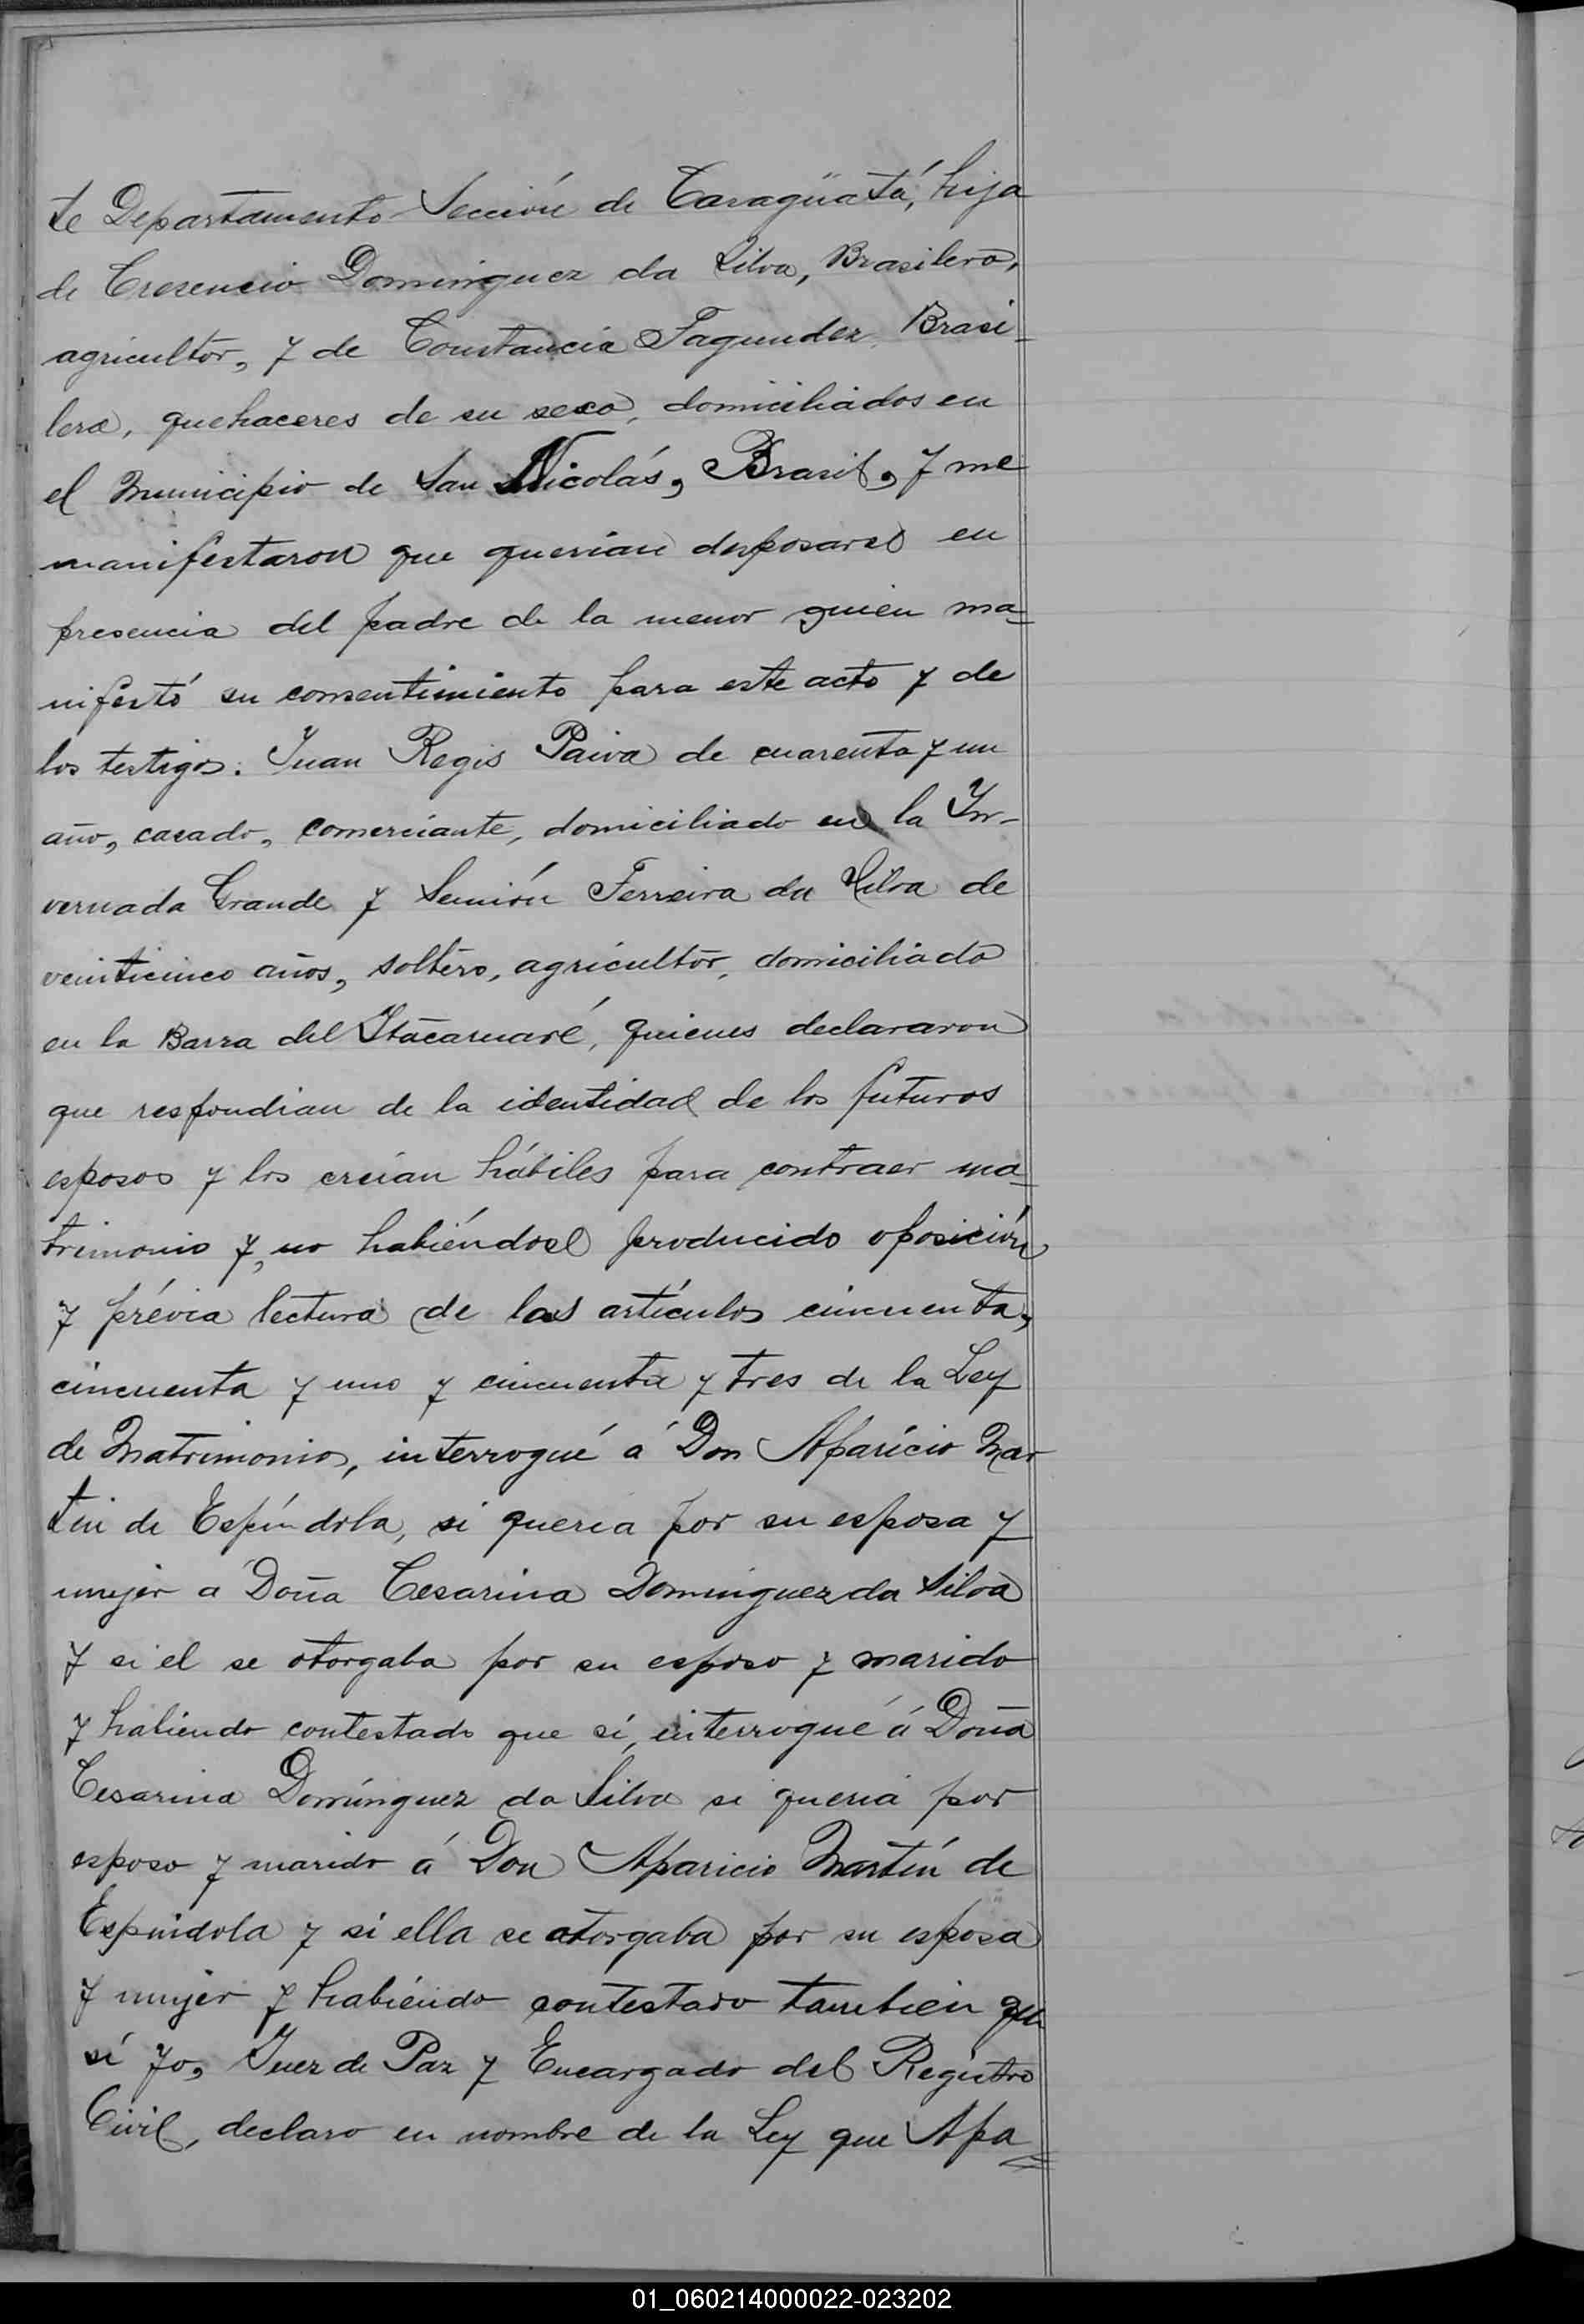 te Departamento Sección de Caragüatá, hija
de Cresencio Dominguez da Silva, Brasilero,
agricultor, y de Constancia Fagundez, Brasi-
lera, quehaceres de su sexo, domiciliados en
el Municipio de San Nicolás, Brasil, y me
manifestaron que querian desposarse en
presencia del padre de la menor quien ma-
nifestó su consentimiento para este acto y de
los testigos: Juan Regis Paiva de cuarenta y un
año, casado, comerciante, domiciliado en la In-
vernada Grande y Ferreira da Silva de
veinticinco años, soltero, agricultor, domiciliado
en la Barra del Itacaruaré, quienes declararon
que respondian de la identidad de los futuros
esposos y los creían hábiles para contraer ma-
trimonio y, no habiéndose producido oposición
y prévia lectura de los artículos cincuenta,
cincuenta y uno y cincuenta y tres de la Ley
de Matrimonio, interrogué á Don Aparicio Mar
tin de Espíndola, si queria por su esposa y
mujer a Doña Cesarina Dominguez da Silva
y si el se otorgaba por su esposo y marido
y habiendo contestado que sí, interrogué á Doña
Cesarina Domínguez da Silva si queria por
esposo y marido á Don Aparicio Martín de
Espindola y si ella se otorgaba por su esposa
y mujer y habiendo contestado tambien que
sí yo, Juez de Paz y Encargado del Registro
Civil, declaro en nombre de la Ley que Apa=
01_060214000022-023202